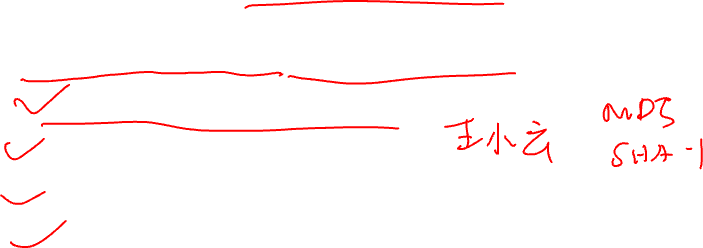 王小云 MD5
SHA-1